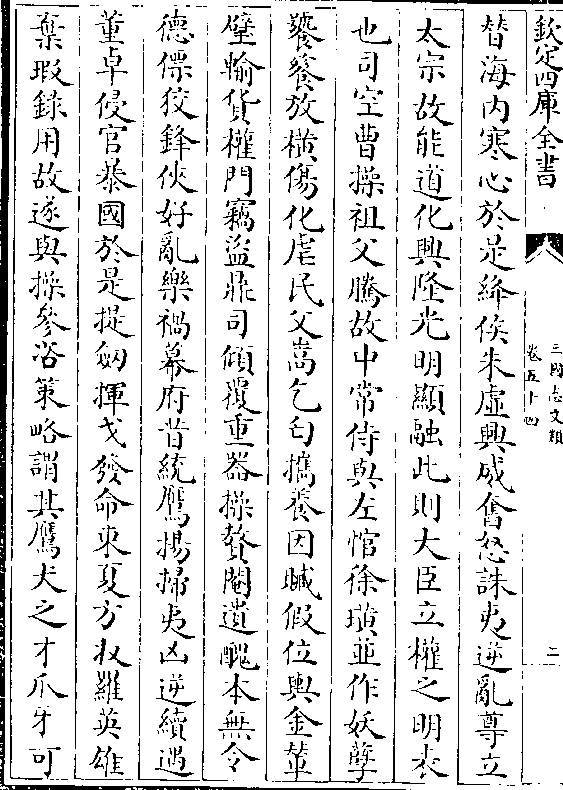 欽定四庫全書
三國志文類
卷五十四
二
替海内寒心於是絳侯朱虛興威奮怒誅夷逆亂尊立
太宗故能道化興隆光明顯融此則大臣立權之明表
也司空曹操祖父騰故中常侍與左悺徐璜並作妖孽
饕餮放橫傷化虐民父嵩乞匄攜養因贓假位輿金輦
璧輸貨權門竊盜鼎司傾覆重器操贅閹遺醜本無令
德僄狡鋒俠好亂樂禍幕府昔統鷹揚掃夷凶逆續遇
董卓侵官暴國於是提劒揮戈發命東夏方收羅英雄
棄瑕錄用故遂與操參咨策略謂其鷹犬之才爪牙可